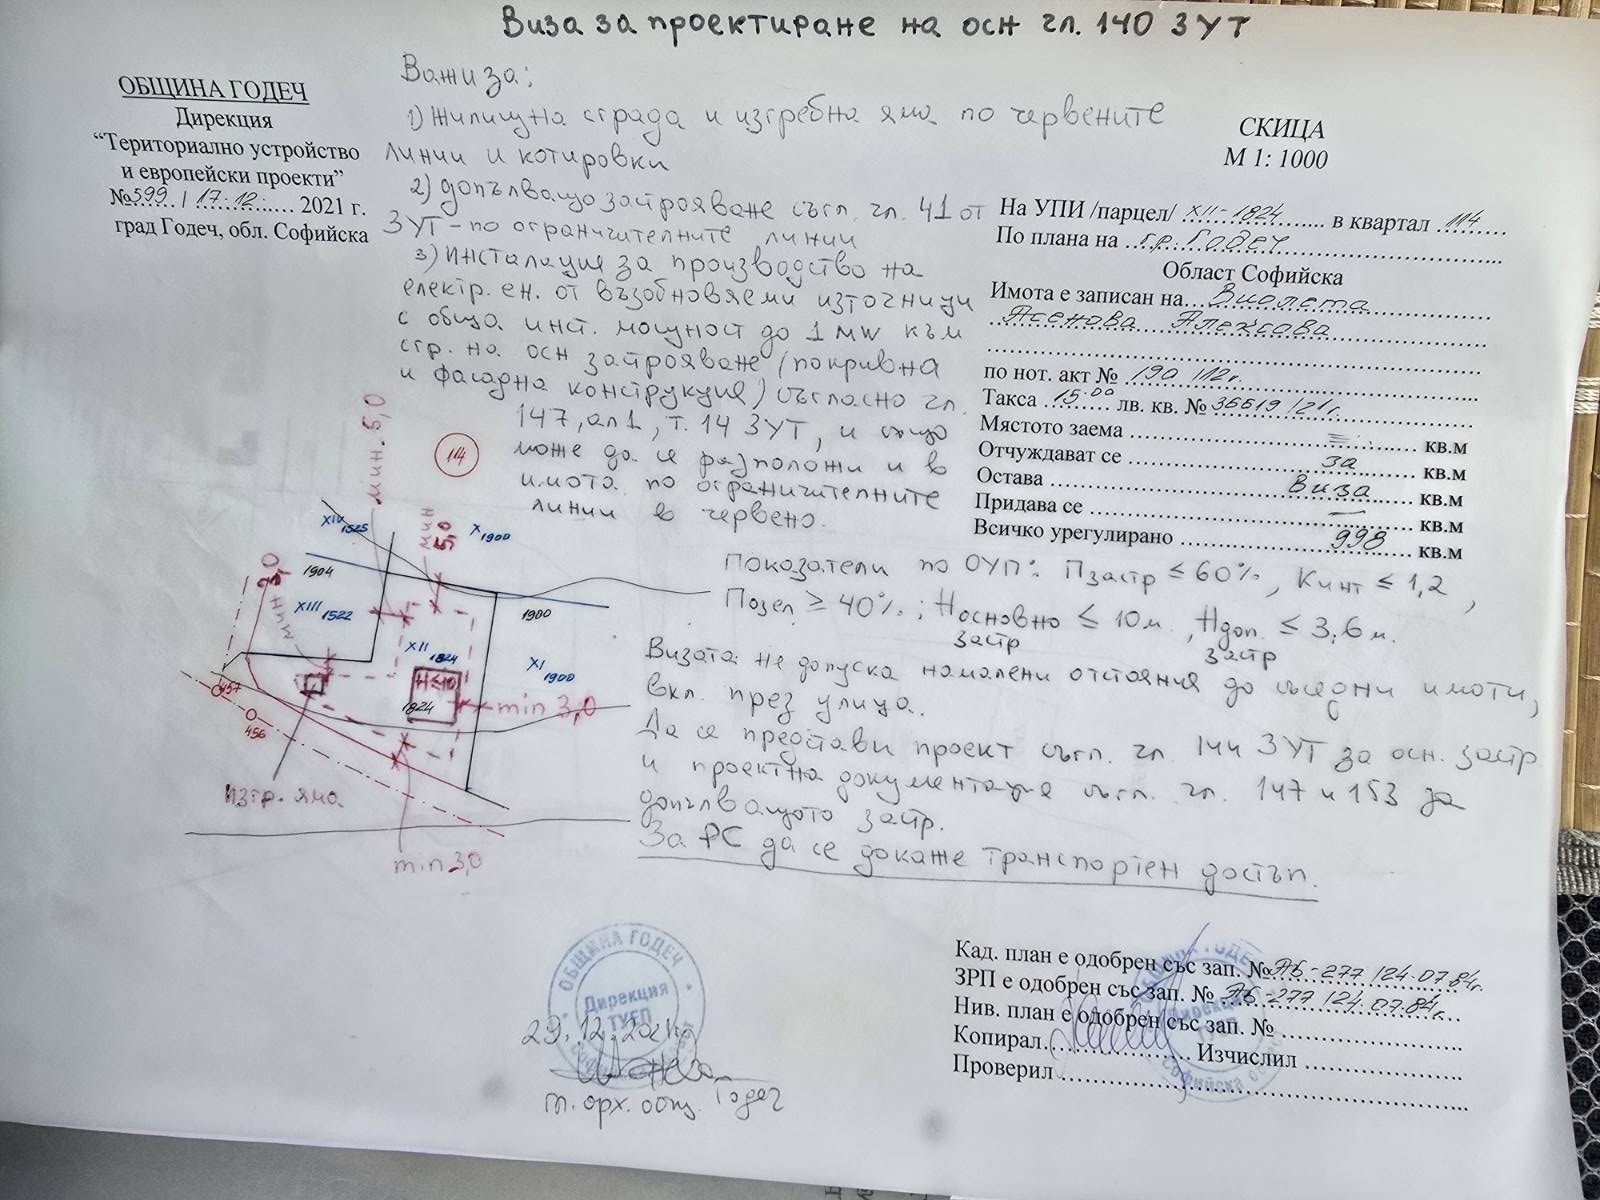 Виза за проектиране на осн чл. 140 ЗУТ
ОБЩИНА ГОДЕЧ
Дирекция
“Териториално устройство
и европейски проекти”
№ 599 / 17.12. 2021 г.
град Годеч, обл. Софийска
Важи за:
1) Жилищна сграда и изгребна яма по червените
линии и котировки
2) допълващо застрояване съгл. чл. 41 от
ЗУТ - по ограничителните линии
3) Инсталация за производство на
електр. ен. от възобновяеми източници
с обща инст. мощност до 1 MW към
стр. на осн застрояване (покривна
и фасадна конструкция) съгласно чл.
147, ал 1, т. 14 ЗУТ, и също
може да се разположи и в
имота по ограничителните
линии в червено.
СКИЦА
М 1: 1000
На УПИ /парцел/ XII-1824 в квартал 114
По плана на гр. Годеч
Област Софийска
Имота е записан на Виолета
Асенова Алексова
по нот. акт № 190 / 12г.
Такса 15.00 лв. кв. № 36619 / 21г.
Мястото заема кв.м
Отчуждават се за кв.м
Остава виза кв.м
Придава се — кв.м
Всичко урегулирано 998 кв.м
Показатели по ОУП: Пзастр ≤ 60%, Кинт ≤ 1,2,
Позел ≥ 40%; Hосновно застр ≤ 10 м., Hдоп. застр ≤ 3,6 м.
Визата не допуска намалени отстояния до съседни имоти,
вкл. през улица.
Да се представи проект съгл. чл. 144 ЗУТ за осн. застр.
и проектна документация съгл. чл. 147 и 153 за
допълващото застр.
За РС да се докаже транспортен достъп.
114
мин. 5,0
мин 5,0
XIV 1525
X 1900
1904
мин 3,0
XIII 1522
1900
XII 1824
XI 1900
H≤10
1824
min 3,0
457
456
изгр. яма
min 3,0
ОБЩИНА ГОДЕЧ
Дирекция
ТУЕП
29.12.2021г.
гл. арх. общ. Годеч
Кад. план е одобрен със зап. № АБ-277 / 24.07.84г.
ЗРП е одобрен със зап. № АБ-277 / 24.07.84г.
Нив. план е одобрен със зап. №
Копирал Изчислил
Проверил